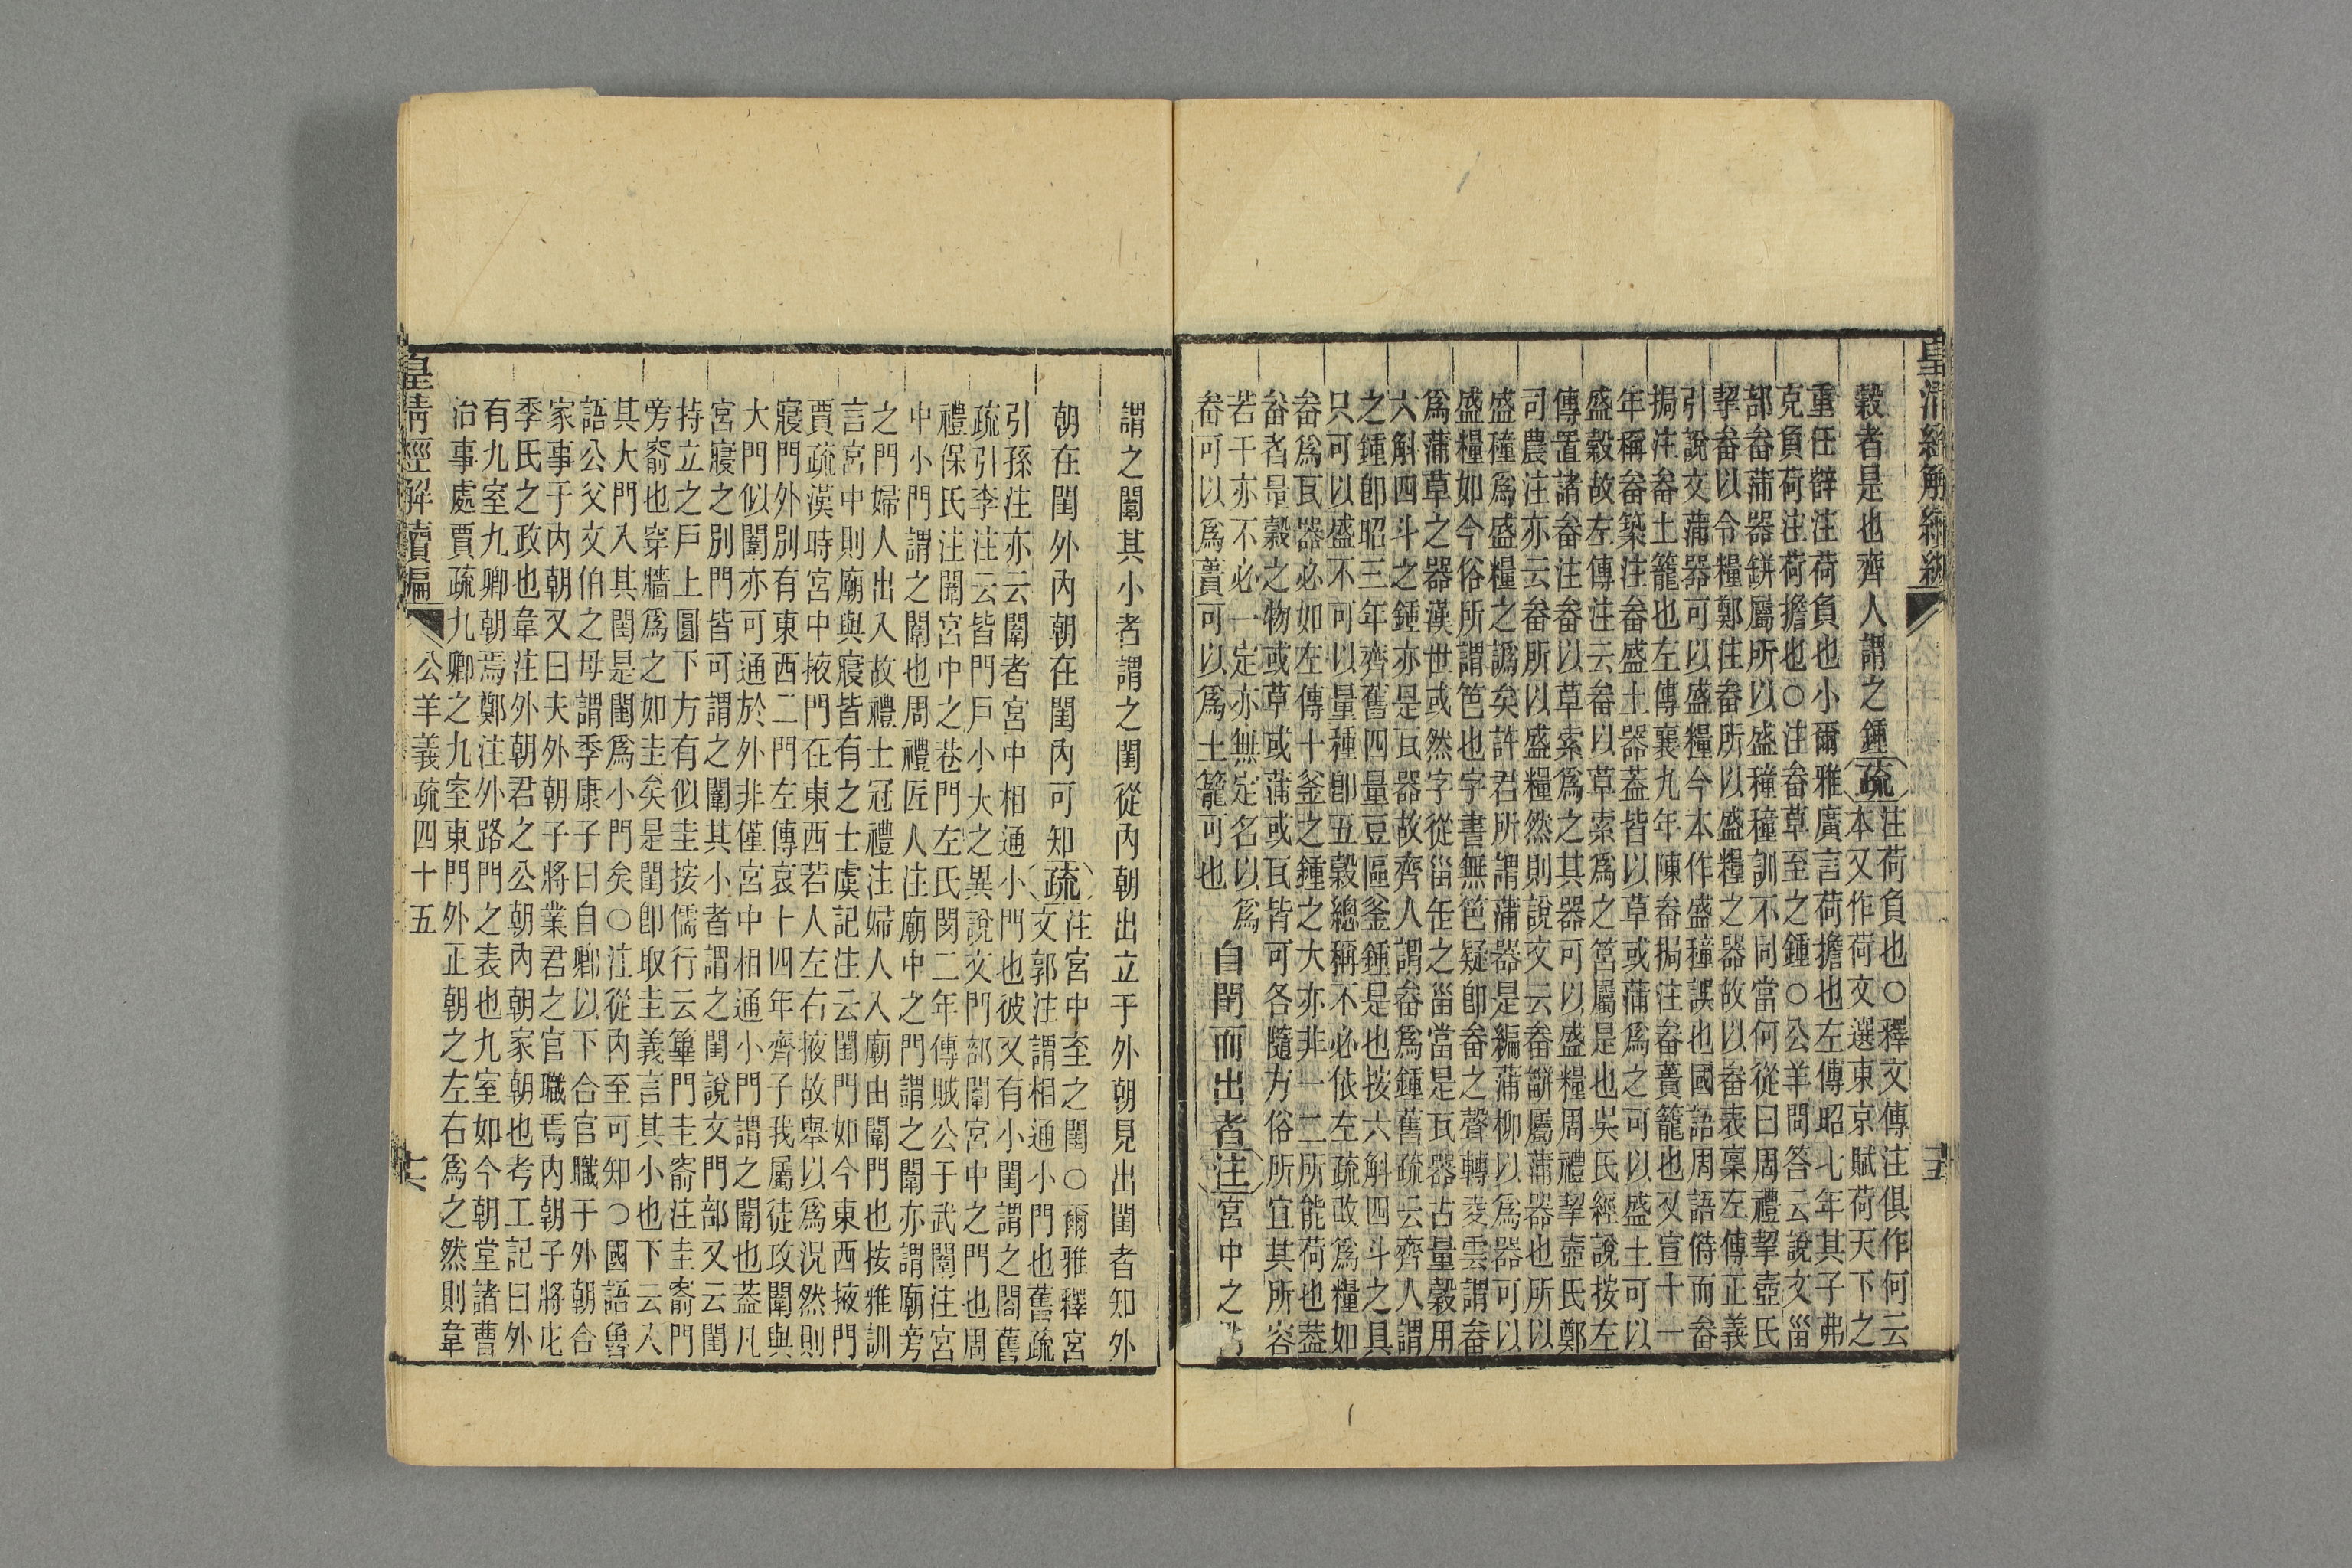 皇清經解續編
十五
穀者是也齊人謂之鍾疏
注荷負也○釋文傳注俱作何云
本又作荷文選東京賦荷天下之
重任薛注荷負也小爾雅廣言荷擔也左傳昭七年其子弗
克負荷注荷擔也○注畚草至之鍾○公羊問答云說文甾
部畚蒲器餅屬所以盛穜穜訓不同當何從曰周禮挈壺氏
挈畚以令糧鄭注畚所以盛糧之器故以畚表稟左傳正義
引說文蒲器可以盛糧今本作盛穜誤也國語周語偫而畚
挶注畚土籠也左傳襄九年陳畚挶注畚蕢籠也又宣十一
年稱畚築注畚盛土器葢皆以草或蒲爲之可以盛土可以
盛穀故左傳注云畚以草索爲之筥屬是也吳氏經說按左
傳置諸畚注畚以草索爲之其器可以盛糧周禮挈壺氏鄭
司農注亦云畚所以盛糧然則說文云畚屬蒲器也所以
盛穜爲盛糧之譌矣許君所謂蒲器是編蒲柳以爲器可以
盛糧如今俗所謂笆也字書無笆疑卽畚之聲轉夌雲謂畚
爲蒲草之器漢世或然字從甾缶之甾當是瓦器古量穀用
六斛四斗之鍾亦是瓦器故齊人謂畚爲鍾舊疏云齊人謂
之鍾卽昭三年齊舊四量豆區釜鍾是也按六斛四斗之具
只可以盛不可以量種卽五穀總稱不必依左疏改爲糧如
畚爲瓦器必如左傳十釜之鍾之大亦非一二所能荷也葢
畚者是穀之物或草或蒲或瓦皆可各隨方俗所宜其所容
若干亦不必一定亦無定名以爲
畚可以爲蕢可以爲土籠可也
自閨而出者注宮中之
謂之闈其小者謂之閨從內朝出立于外朝見出閨者知外
朝在閨外內朝在閨內可知疏
注宮中至之閨○爾雅釋宮
文郭注謂相通小門也舊疏
引孫注亦云闈者宮中相通小門也彼又有小閨謂之閤舊
疏引李注云皆門戶小大之異說文門部闈宮中之門也周
禮保氏注闈宮中之巷門左氏閔二年傳賊公于武闈注宮
中小門謂之闈也周禮匠人注廟中之門謂之闈亦謂廟旁
之門婦人出入故禮士冠禮注婦人入廟由闈門也按雅訓
言宮中則廟與寢皆有之士虞記注云闈門如今東西掖門
賈疏漢時宮中掖門在東西若人左右掖故舉以爲況然則
寢門外別有東西二門左傳哀十四年齊子我屬徒攻闈與
大門似闈亦可通於外非僅宮中相通小門謂之闈也葢凡
宮寢之別門皆可謂之闈其小者謂之閨說文門部又云閨
持立之戶上圓下方有似圭按儒行云篳門圭窬注圭窬門
旁窬也穿牆爲之如圭矣是閨卽取圭義言其小也下云入
其大門入其閨是閨爲小門矣○注從內至可知○國語魯
語公父文伯之母謂季康子曰自卿以下合官職于外朝合
家事于內朝又曰夫外朝子將業君之官職焉內朝子將庀
季氏之政也韋注外朝君之公朝內朝家朝也考工記曰外
有九室九卿朝焉鄭注外路門之表也九室如今朝堂諸曹
治事處賈疏九卿之九室東門外正朝之左右爲之然則韋
皇清經解續編
公羊義疏四十五